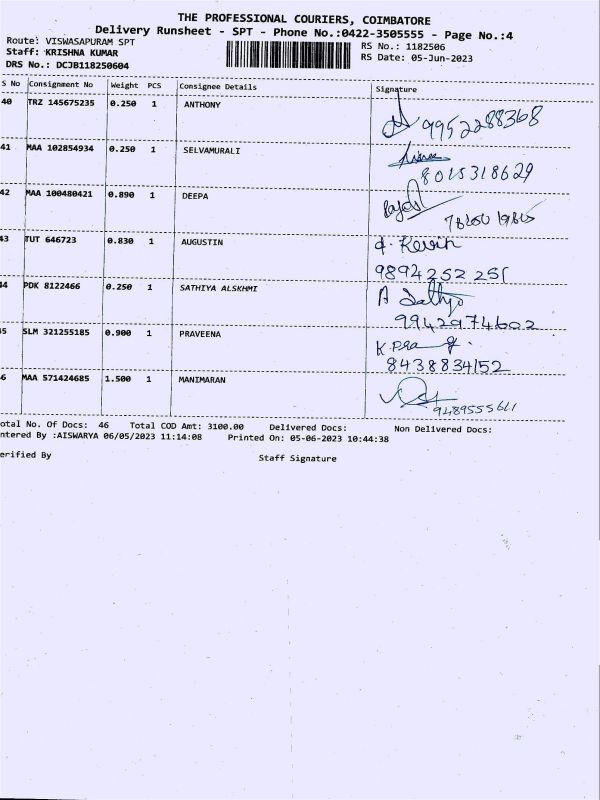 THE PROFESSIONAL COURIERS, COIMBATORE
Delivery Runsheet - SPT - Phone No.:0422-3505555 - Page No.:4
Route: VISWASAPURAM SPT
RS No.: 1182506
Staff: KRISHNA KUMAR
RS Date: 05-Jun-2023
DRS No.: DCJB118250604
S No Consignment No Weight PCS Consignee Details Signature
40 TRZ 145675235 0.250 1 ANTHONY
9952288368
41 MAA 102854934 0.250 1 SELVAMURALI
8015318629
42 MAA 100480421 0.890 1 DEEPA
43 TUT 646723 0.830 1 AUGUSTIN
d. Kevin
9894252 251
44 PDK 8122466 0.250 1 SATHIYA ALSKHMI
A Sathya
9942974602
45 SLM 321255185 0.900 1 PRAVEENA
K.Pra
8438834152
46 MAA 571424685 1.500 1 MANIMARAN
9489555611
otal No. Of Docs: 46 Total COD Amt: 3100.00 Delivered Docs: Non Delivered Docs:
ntered By :AISWARYA 06/05/2023 11:14:08 Printed On: 05-06-2023 10:44:38
erified By Staff Signature